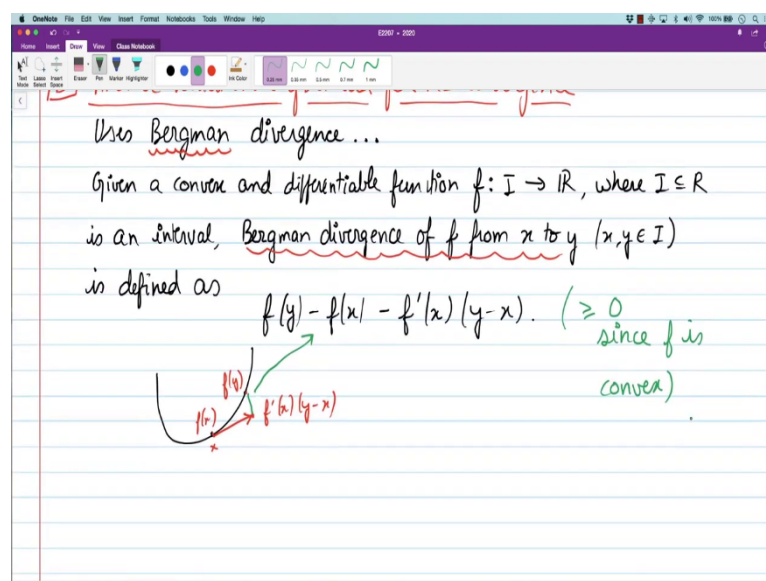 OneNote File Edit View Insert Format Notebooks Tools Window Help 100%
E2207 - 2020
Home Insert Draw View Class Notebook
Text Mode Lasso Select Insert Space Eraser Pen Marker Highlighter Ink Color 0.25 mm 0.35 mm 0.5 mm 0.7 mm 1 mm
Uses Bergman divergence ...
Given a convex and differentiable function f: I → R, where I ⊆ R
is an interval, Bergman divergence of f from x to y (x, y ∈ I)
is defined as
f(y) - f(x) - f'(x)(y-x). (≥ 0
since f is
convex)
f(y)
f(x) f'(x)(y-x)
x